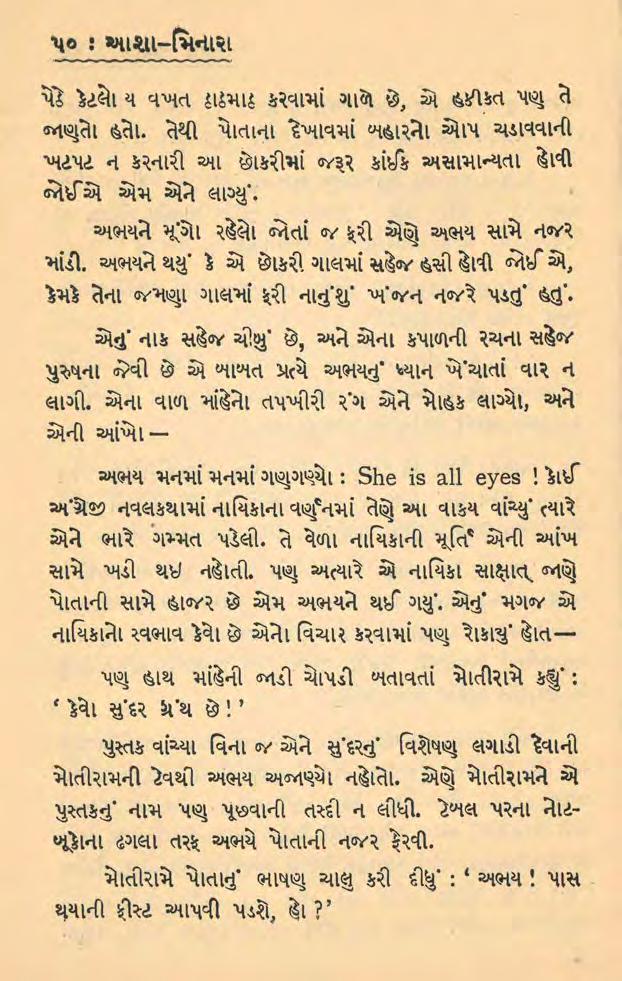 ૫૦ : આશા–મિનારા
પેઠે કેટલો ય વખત ઠાઠમાઠ કરવામાં ગાળે છે, એ હકીકત પણ તે
જાણતો હતો. તેથી પોતાના દેખાવમાં બહારનો ઓપ ચડાવવાની
ખટપટ ન કરનારી આ છોકરીમાં જરૂર કાંઈક અસામાન્યતા હોવી
જોઈએ એમ એને લાગ્યું.
અભયને મૂંગો રહેલો જોતાં જ ફરી એણે અભય સામે નજર
માંડી. અભયને થયું કે એ છોકરી ગાલમાં સહેજ હસી હોવી જોઈએ,
કેમકે તેના જમણા ગાલમાં ફરી નાનુંશું ખંજન નજરે પડતું હતું.
એનું નાક સહેજ ચીબું છે, અને એના કપાળની રચના સહેજ
પુરુષના જેવી છે એ બાબત પ્રત્યે અભયનું ધ્યાન ખેંચાતાં વાર ન
લાગી. એના વાળ માંહેનો તપખીરી રંગ એને મોહક લાગ્યો, અને
એની આંખો —
અભય મનમાં મનમાં ગણગણ્યો : She is all eyes ! કોઈ
અંગ્રેજી નવલકથામાં નાયિકાના વર્ણનમાં તેણે આ વાક્ય વાંચ્યું ત્યારે
એને ભારે ગમ્મત પડેલી. તે વેળા નાયિકાની મૂર્તિ એની આંખ
સામે ખડી થઇ નહોતી. પણ અત્યારે એ નાયિકા સાક્ષાત્ જાણે
પોતાની સામે હાજર છે એમ અભયને થઈ ગયું. એનું મગજ એ
નાયિકાનો સ્વભાવ કેવો છે એનો વિચાર કરવામાં પણ રોકાયું હોત—
પણ હાથ માંહેની જાડી ચોપડી બતાવતાં મોતીરામે કહ્યું :
‘ કેવો સુંદર ગ્રંથ છે ! ’
પુસ્તક વાંચ્યા વિના જ એને સુંદરનું વિશેષણ લગાડી દેવાની
મોતીરામની ટેવથી અભય અજાણ્યો નહોતો. એણે મોતીરામને એ
પુસ્તકનું નામ પણ પૂછવાની તસ્દી ન લીધી. ટેબલ પરના નોટ-
બૂકોના ઢગલા તરફ અભયે પોતાની નજર ફેરવી.
મોતીરામે પોતાનું ભાષણ ચાલુ કરી દીધું : ‘ અભય ! પાસ
થયાની ફીસ્ટ આપવી પડશે, હો ?’